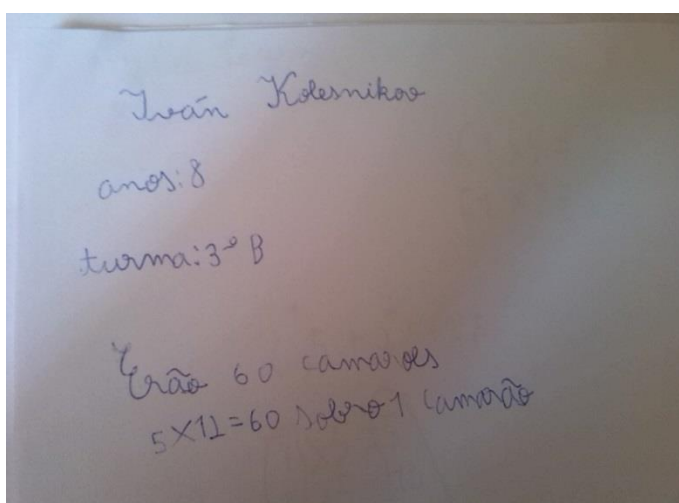 Iván Kolesnikov
anos: 8
turma: 3º B
Erão 60 camarões
5X12=60 sobro 1 camarão